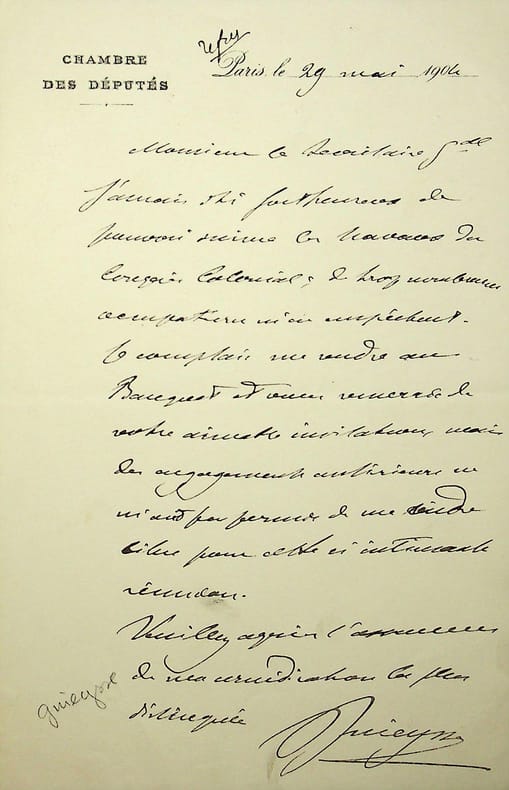 CHAMBRE
DES DÉPUTÉS
Paris, le 29 mai 1904
Monsieur le Secrétaire Gal
J'aurais été fort heureux de
pouvoir suivre les travaux du
Congrès Colonial; de trop nombreuses
occupations m'en empêchent.
Je comptais me rendre au
Banquet et vous remercie de
votre aimable invitation, mais
des engagements antérieurs ne
m'ont pas permis de me rendre
libre pour cette si intéressante
réunion.
Veuillez agréer l'assurance
de ma considération la plus
distinguée
Guieysse
Guieysse